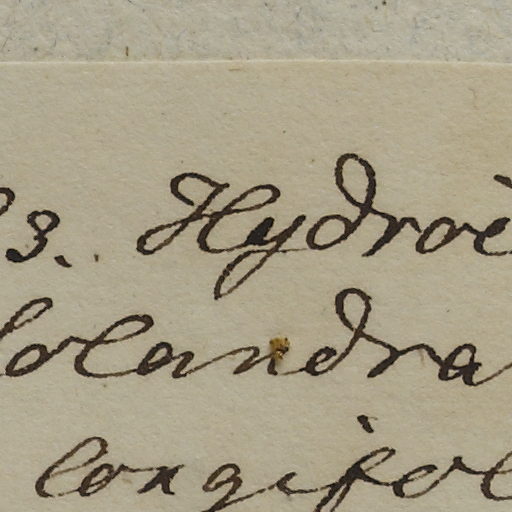 3. Hydroè
olandra
longifol